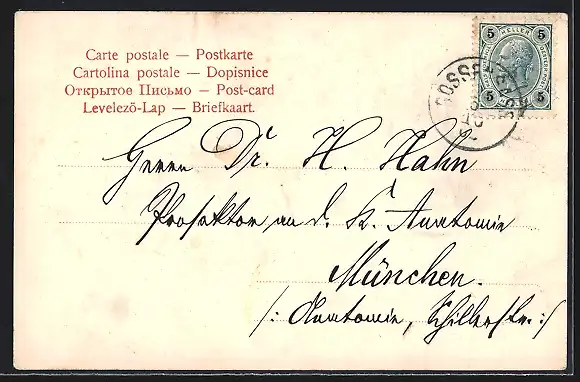 Carte postale — Postkarte
Cartolina postale — Dopisnice
Открытое Письмо — Post-card
Levelező-Lap — Briefkaart.
5 HELLER 5
5 5
GOSSENSASS
Herrn Dr. H. Hahn
Prosektor an d. K. Anatomie
München.
/: Anatomie, Schillerstr. :/